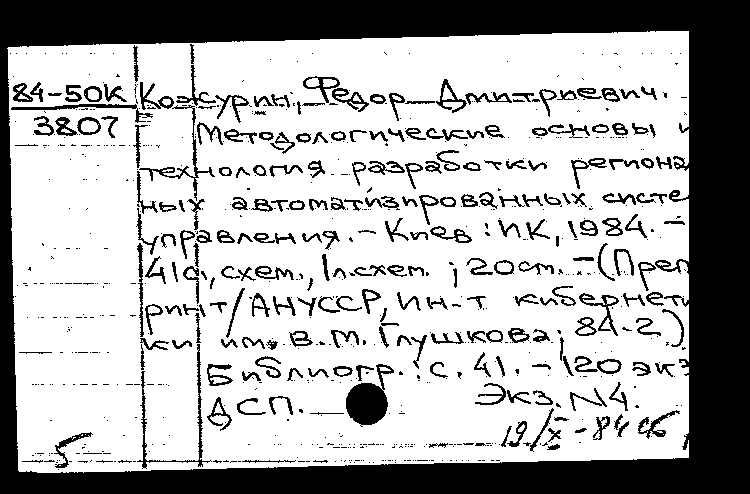 84-50К Кожурин, Федор Дмитриевич.
3807 Методологические основы и
технология разработки региона
ных автоматизированных систе
управления. - Киев : ИК, 1984. -
41с., схем., 1л.схем. ; 20см. - (Преп
ринт/АН УССР, Ин-т кибернети
ки им. В.М. Глушкова; 84-2)
Библиогр.: с. 41. - 120 экз
ДСП. Экз. N4.
19/X - 84
5